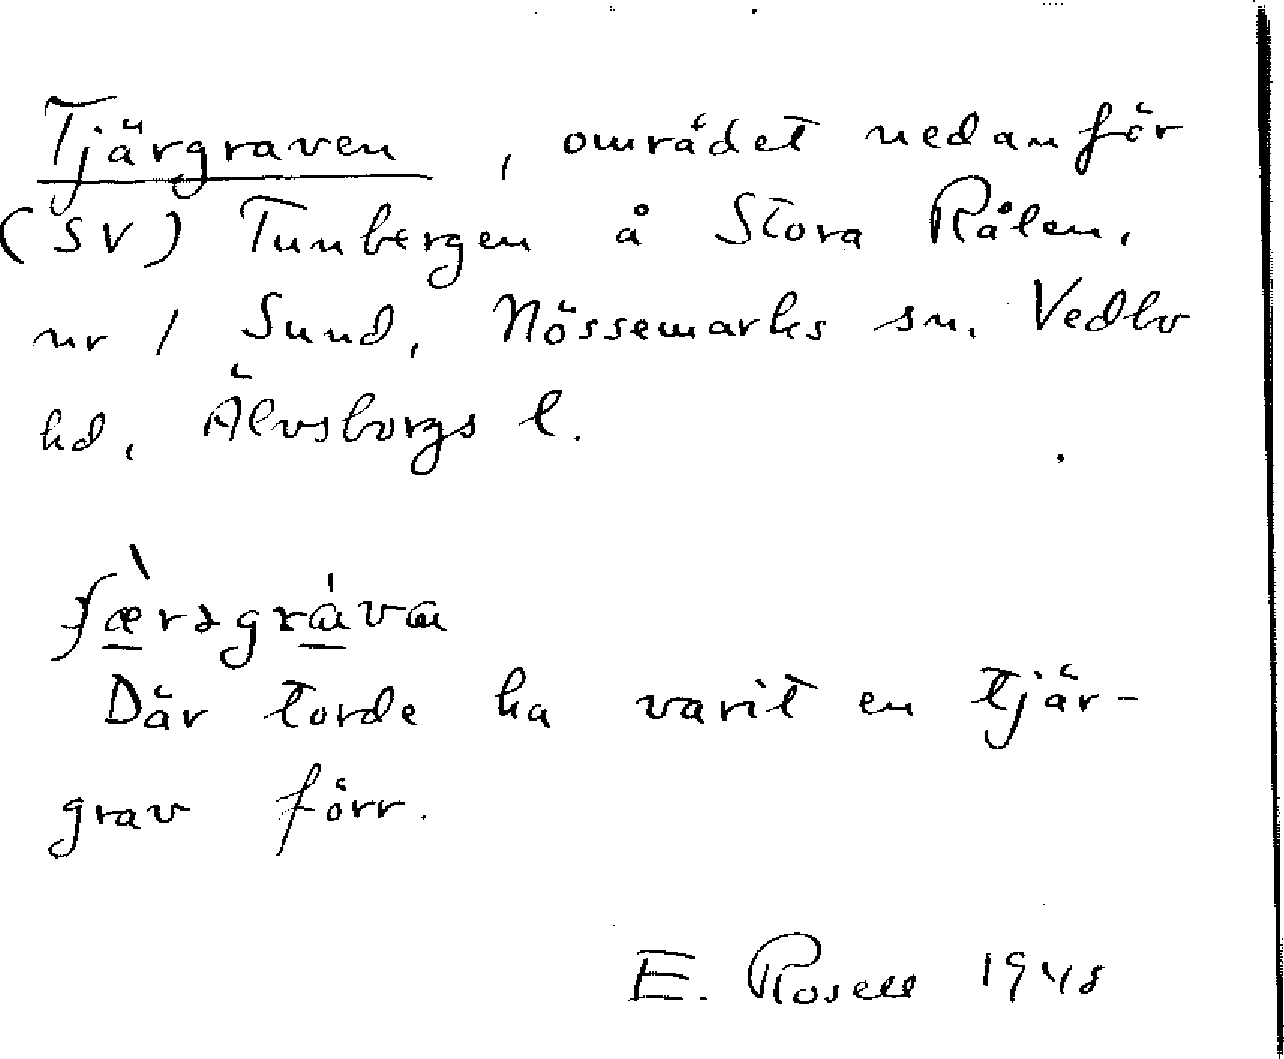 Tjärgraven, området nedanför
(SV) Tunbergen å Stora Rålen,
nr 1 Sund, Nössemarks sn. Vedbo
hd, Älvsborgs l.
Där torde ha varit en tjär-
grav förr.
E. Rosell 1948